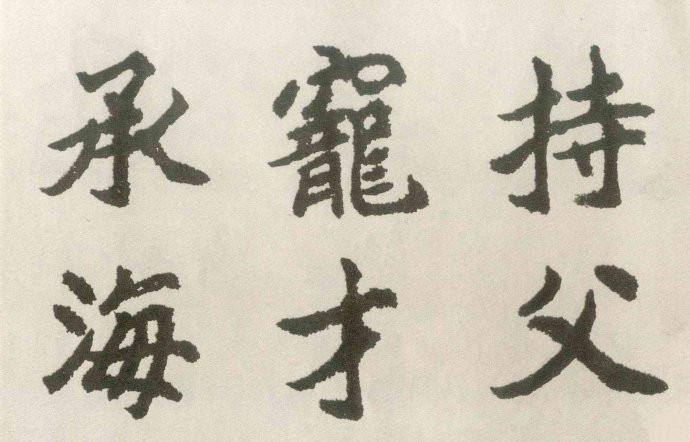 持父
寵才
承海